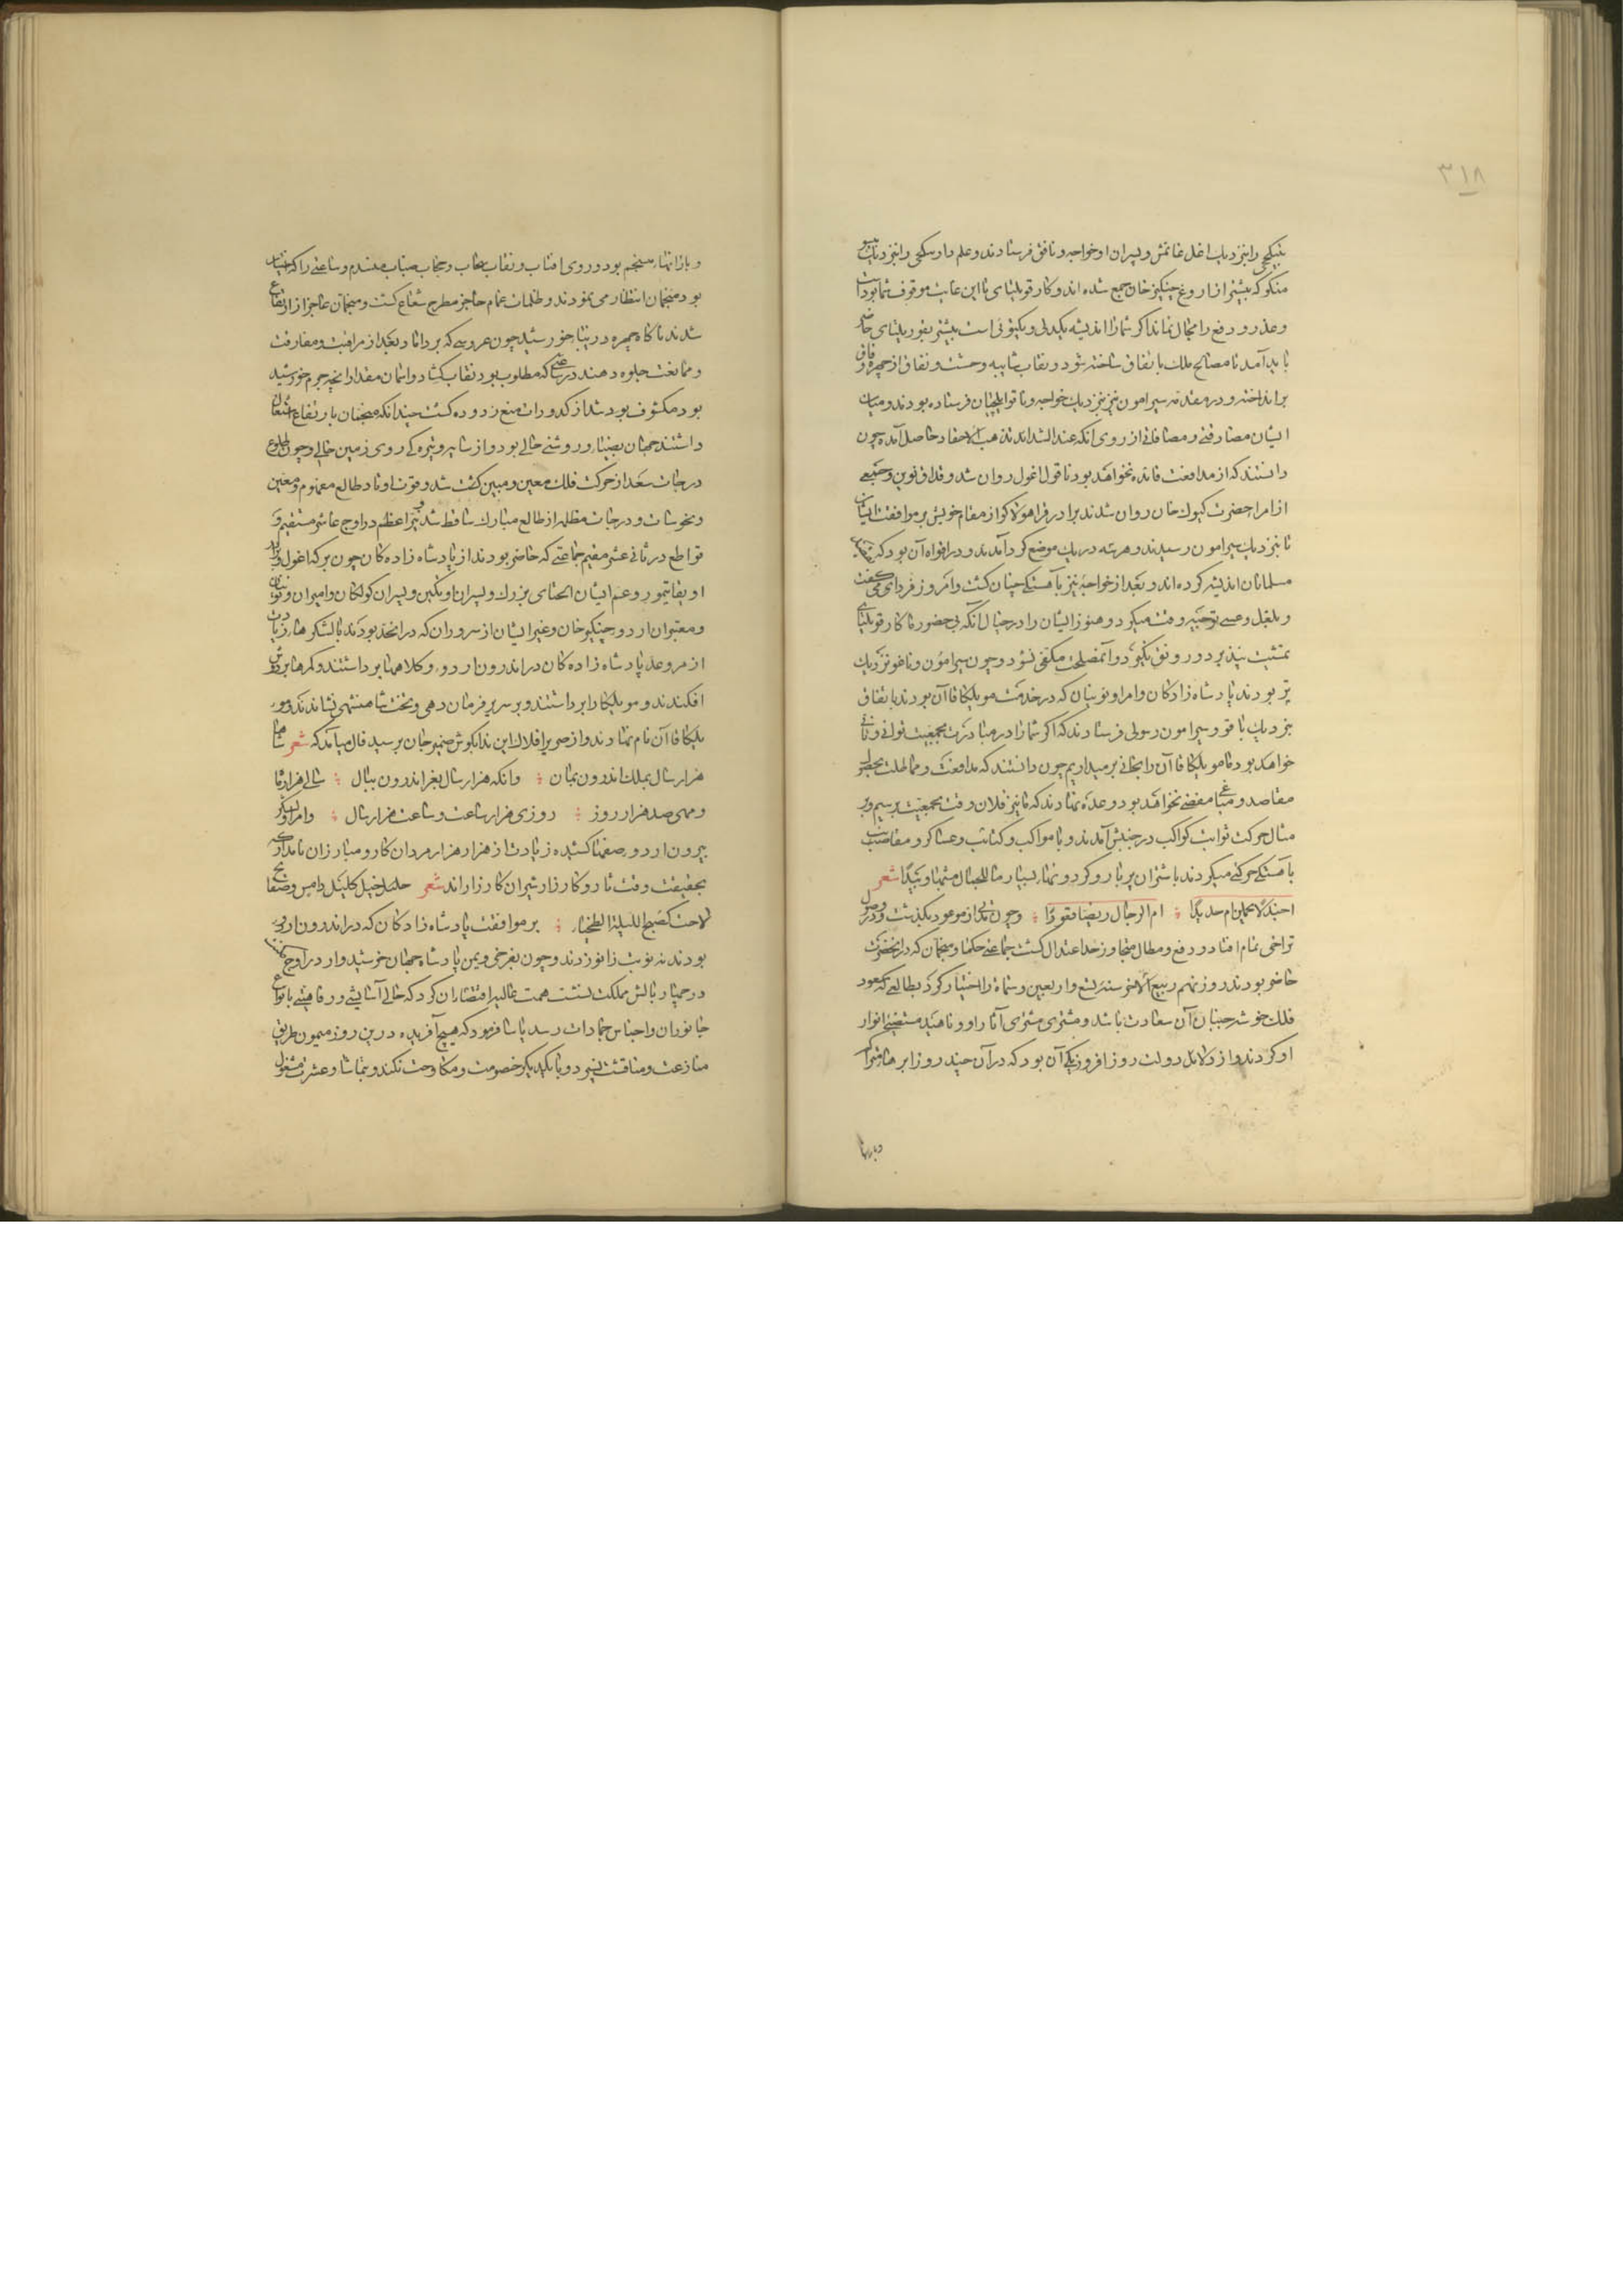 ۳۱۸
بتیکچی را بنزدیک اغل غانمش و پسران او خواجه و ناقو فرستادند و علم دار بتکچی را بنزدیک
منکو که بیشتر از اروغ چنکیز خان جمع شده اند و کار قوریلتای تا این غایت موقوف شما بوداست
و عذر و دفع را مجال نماند اگر شما را اندیشه یکدلی و یکتویی است بیشتر بقوریلتای حاضر
باید آمد تا مصالح ملک باتفاق ساخته شود و نقاب شایبه وحشت و نفاق از چهره وفاق
برانداخته و در مقدمه سیرامون نیز بنزدیک خواجه و ناقو ایلچیان فرستاده بودند و میان
ایشان مصادقتی و مصافاتی از روی آنکه عند الشداید تذهب الاحقاد حاصل آمده چون
دانستند که از مدافعت فایده نخواهد بود ناقو اغول روان شد و قداق نوین و جمعی
از امرا حضرت کیوک خان روان شدند برادر قراهولاکو از مقام خویش بر موافقت ایشان
تا بنزدیک سیرامون رسیدند و هر سه در یک موضع گرد آمدند و در افواه آن بود که
مسلمانان اندیشه کرده اند و بعد از خواجه نیز باهستگی چنان گشت و امروز فردا می گفت
و بلعل و عسی توجیه وقت میکرد و هنوز ایشان را در خیال آنکه بی حضور ما کار قوریلتای
تمشیت نپذیرد و رونق نگیرد و آن مصلحت مکفی نشود و چون سیرامون و ناقو نزدیک
تر بودند پادشاه زادکان و امرا و نوینان که در خدمت مونککا قاآن بودند باتفاق
بنزدیک ناقو و سیرامون رسولی فرستادند که اگر شما را در مبادرت بجمعیت توانی و تانی
خواهد بود ما مونککا قاآن را بخانی برمیداریم چون دانستند که مدافعت و مماطلت بحصول
مقاصد و مباغی مفضی نخواهد بود وعده نهادند که ما نیز فلان وقت بجمعیت برسیم و بر
مثال حرکت ثوابت کواکب در جنبش آمدند و با مواکب و کتایب و عساکر و مقانب
باهستگی حرکتی میکردند با شتران پر بار و گردونهای بسیار ما للجمال مشیها وئیدا شعر
اجندلا یحملن ام حدیدا ؞ ام الرجال ربضا قعودا ؞ و چون مدتی از موعود بگذشت و در وصول
تراخی تمام افتاد و دفع و مطال متجاوز حد اعتدال گشت جماعتی حکما و منجمان که در آن حضرت
حاضر بودند روز نهم ربیع الاخر سنه تسع و اربعین و ستمائه را اختیار کردند بطالعی که سعود
فلک خوشه چینان آن سعادت باشد و مشتری مشتری آثار او و ناهید مستضیی انوار
او کردند و از دلایل دولت روز افزون یکی آن بود که در آن چند روز ابرها متراکم
و بارانها
و بارانها منسجم بود و روی افتاب و نقاب سحاب و حجاب ضباب منسدم و ساعتی را که اختیار
بود منجمان انتظار می نمودند و ظلمات غمام حاجز مطرح شعاع گشت و منجمان عاجز از ارتفاع
شدند ناکاه چهره زیبا خورشید چون عروسی که بر داماد بعد از مراقبت و مفارقت
و ممانعت جلوه دهند در ساعتی که مطلوب بود نقاب گشاد و آسمان مقدار آنچه جرم خورشید
بود مکشوف بود شد از کدورات میغ زدوده گشت چندانکه منجمان بارتفاع اشتغال
داشتند جهان بضیا و روشنی حالی بود و از شایبه تیره گی روی زمین خالی و چون طلوع
درجات سعد از حرکت فلک معین و مبین گشت شد و قوت اوتاد طالع معلوم و معین
و نحوسات و درجات مظلمه از طالع مبارک ساقط شد و نیر اعظم در اوج عاشر مستقیم و
قواطع در ثانی عشر مقیم جماعتی که حاضر بودند از پادشاه زاده کان چون برکه اغول و برادر
او بقاتیمور و عم ایشان الجتای بزرک و پسران اوتکین و پسران کولکان و امیران و نوینان
و معتبران اردو چنکیز خان و غیر ایشان از سروران که در آنحد بودند با لشکرها زیادت
از مر و عد پادشاه زاده کان در اندرون اردو کلاهها برداشتند و کمرها بر دوش
افکندند و مونککا را برداشتند و بر سریر فرمان دهی و تخت شاهنشهی نشاندند و مو
نککا قاآن نام نهادند و از صریر افلاک این ندا بکوش ضمیر جان برسید فال میآمد که شعر شاها
هزار سال بملک اندرون بمان ؞ و آنکه هزار سال بعز اندرون ببال ؞ سالی هزار ماه
و مهی صد هزار روز ؞ روزی هزار ساعت و ساعت هزار سال ؞ و امرا و لشکر
بیرون اردو صفها کشیده زیادت از هزار هزار مردان کار و مبارزان نامدار که
بحقیقت وقت بار و کارزار شیران کارزار اند شعر خیل کاللیل دامس و صفایح
لاحت کصبح اللیلة الطخیاء ؞ بر موافقت پادشاه زادکان که در اندرون اردو
بودند نه نوبت زانو زدند و چون بفرخی و یمن پادشاه جهان خورشیدوار در اوج
در چهار بالش مملکت نشست همت عالیه اقتضا ان کرد که حالی آسایشی و رفاهیتی بانواع
جانوران و اجناس جمادات رسد یاسا فرمود که هیچ آفریده درین روز میمون طریق
منازعت و مناقشت نسپرد و با یکدیکر خصومت و مکاوحت نکند و بتماشا و عشرت مشغول